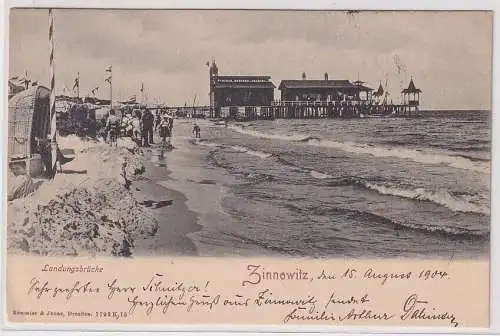 Landungsbrücke
Zinnowitz, den 15 August 1904.
Sehr geehrter Herr Schnitzer!
Herzlichen Gruß aus Zinnowitz sendet
Familie Arthur
Römmler & Jonas, Dresden.